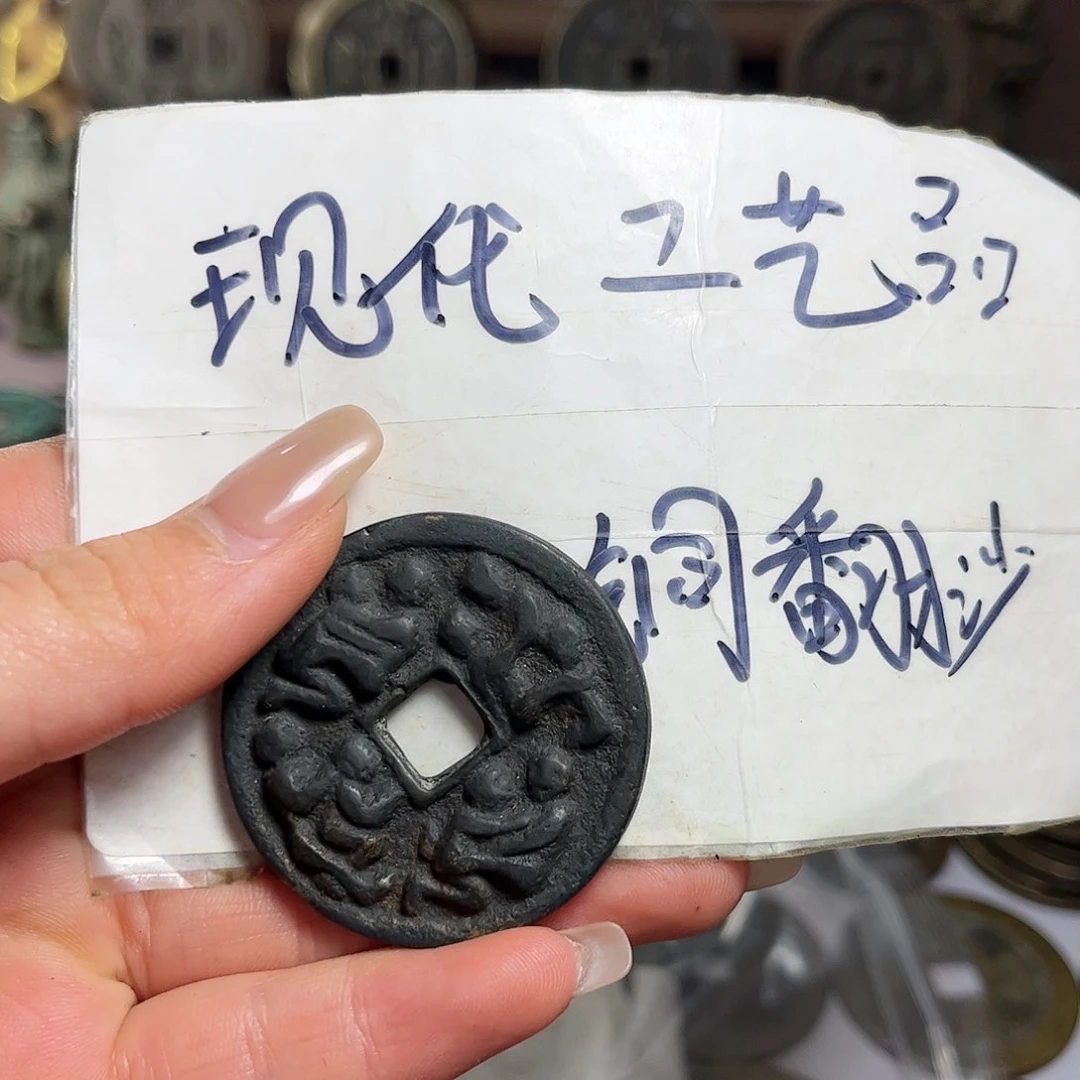 现代工艺品
铜翻沙